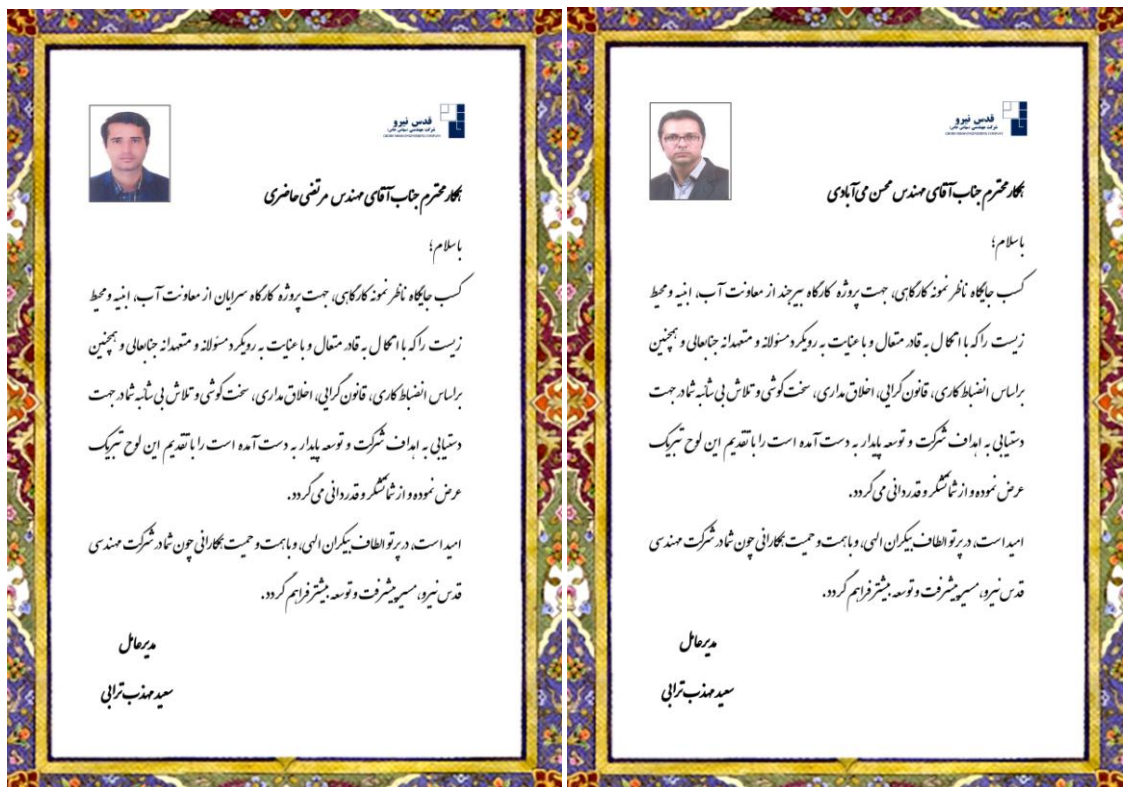 قدس نیرو
شرکت مهندسی (سهامی خاص)
همکار محترم جناب آقای مهندس مرتضی حاضری
باسلام؛
کسب جایگاه ناظر نمونه کارگاهی، جهت پروژه کارگاه سرایان از معاونت آب، ابنیه و محیط
زیست را که با اتکال به قادر متعال و با عنایت به رویکرد مسئولانه و متعهدانه جنابعالی و همچنین
براساس انضباط کاری، قانون گرایی، اخلاق مداری، سخت کوشی و تلاش بی شائبه شما در جهت
دستیابی به اهداف شرکت و توسعه پایدار به دست آمده است را با تقدیم این لوح تبریک
عرض نموده و از شما تشکر و قدردانی می گردد.
امید است، در پرتو الطاف بیکران الهی، و با همت و حمیت همکارانی چون شما در شرکت مهندسی
قدس نیرو، مسیر پیشرفت و توسعه بیشتر فراهم گردد.
مدیرعامل
سعید مهذب ترابی
قدس نیرو
شرکت مهندسی (سهامی خاص)
همکار محترم جناب آقای مهندس محسن می آبادی
باسلام؛
کسب جایگاه ناظر نمونه کارگاهی، جهت پروژه کارگاه بیرجند از معاونت آب، ابنیه و محیط
زیست را که با اتکال به قادر متعال و با عنایت به رویکرد مسئولانه و متعهدانه جنابعالی و همچنین
براساس انضباط کاری، قانون گرایی، اخلاق مداری، سخت کوشی و تلاش بی شائبه شما در جهت
دستیابی به اهداف شرکت و توسعه پایدار به دست آمده است را با تقدیم این لوح تبریک
عرض نموده و از شما تشکر و قدردانی می گردد.
امید است، در پرتو الطاف بیکران الهی، و با همت و حمیت همکارانی چون شما در شرکت مهندسی
قدس نیرو، مسیر پیشرفت و توسعه بیشتر فراهم گردد.
مدیرعامل
سعید مهذب ترابی